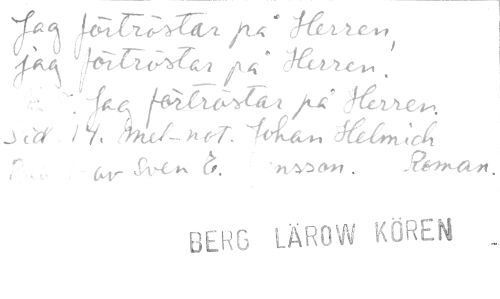 Jag förtröstar på Herren,
jag förtröstar på Herren.
Jag förtröstar på Herren.
sid 14. mel-not. Johan Helmich
av Sven E. Roman.
BERG LÄROW KÖREN